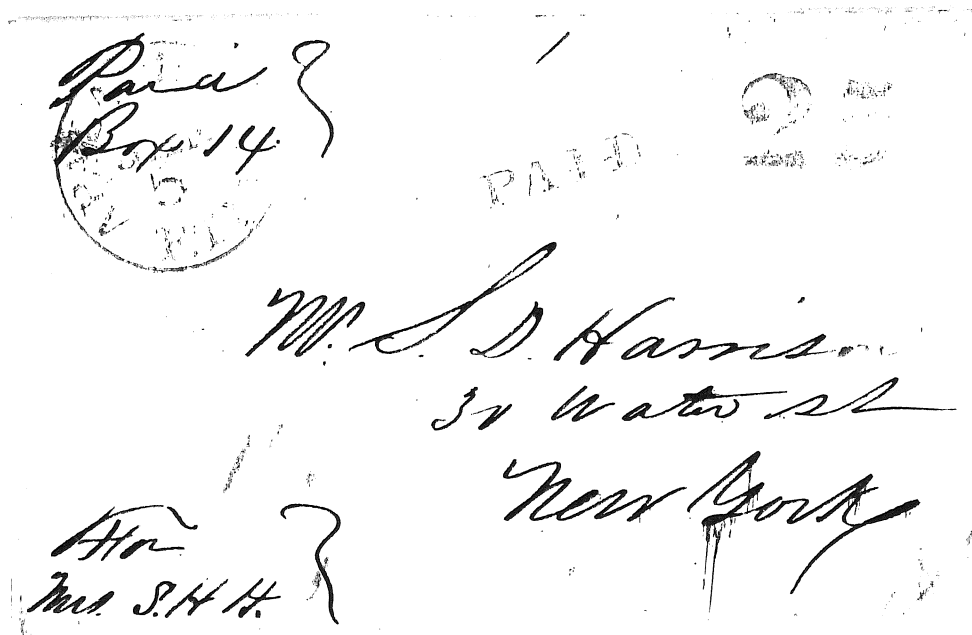 Paid
Box 14
5
PAID
Mr. S. D. Harris
Water st
New York
For
Mrs. S. H H.